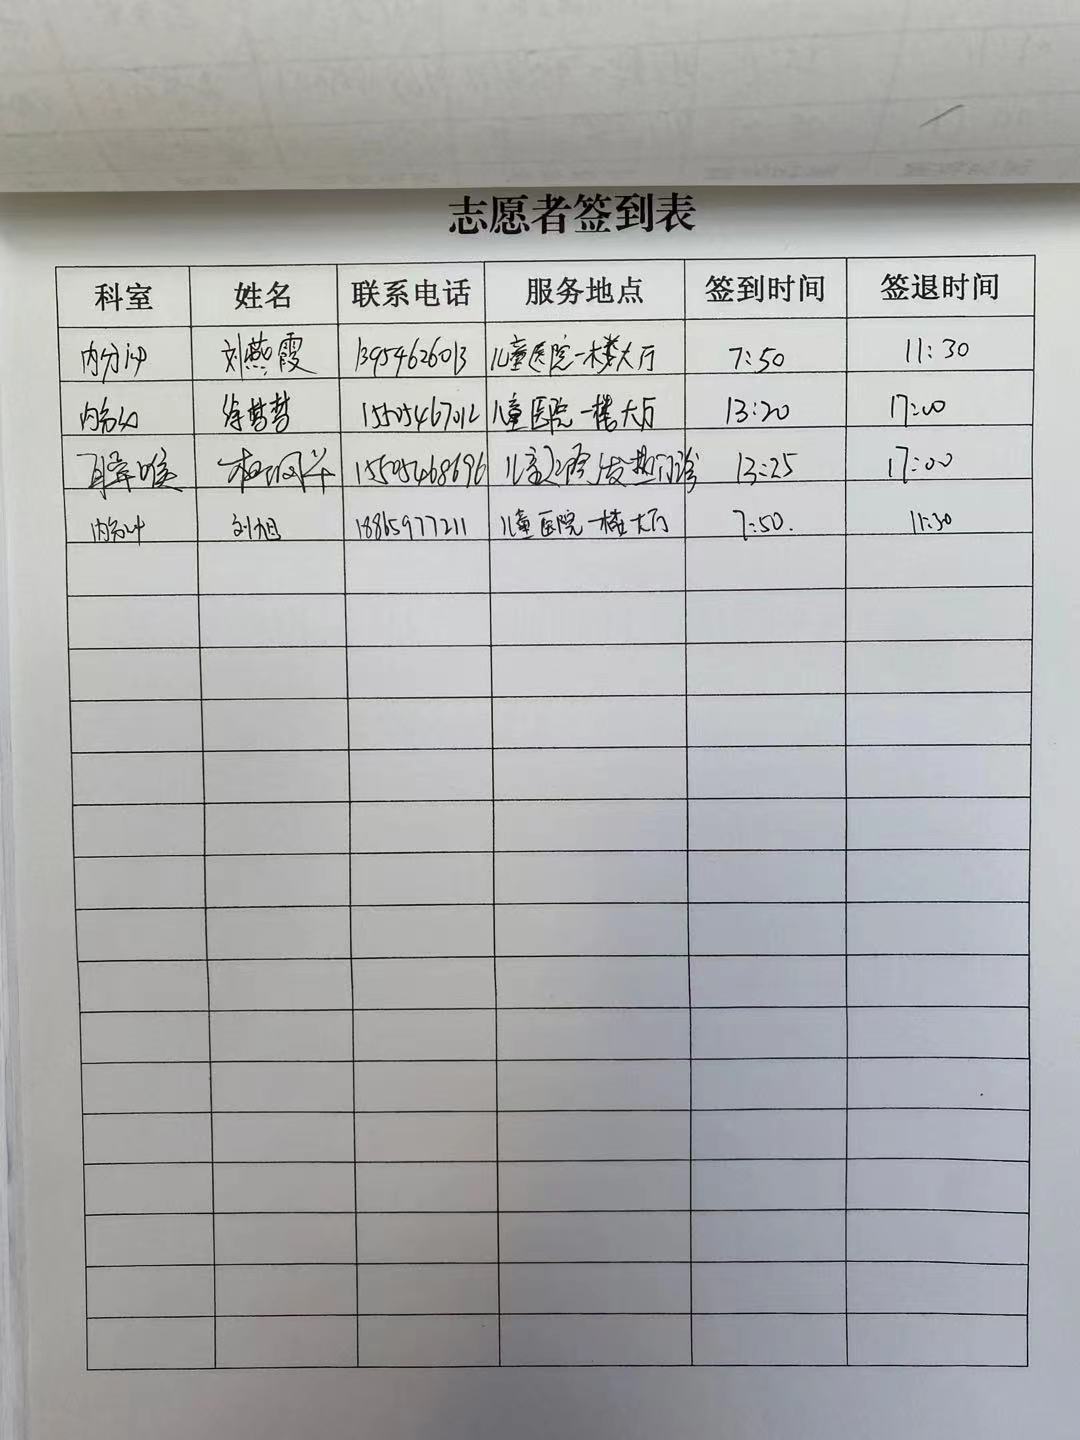 志愿者签到表
科室 姓名 联系电话 服务地点 签到时间 签退时间
内分泌 刘燕霞 13954626013 儿童医院一楼大厅 7:50 11:30
徐哲哲 15505467012 儿童医院一楼大厅 13:20 17:00
耳鼻喉 15505468696 发热门诊 13:25 17:00
刘旭 18865977211 儿童医院一楼大厅 7:50. 11:30